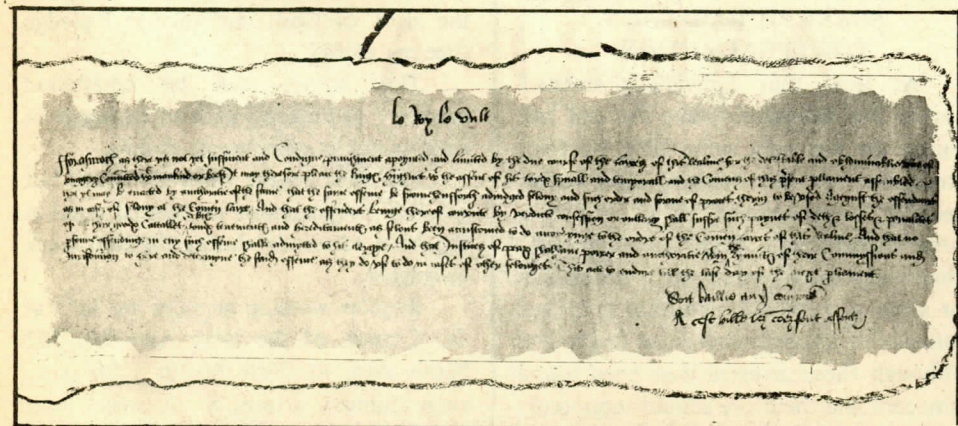 Le Roy le vult
Forasmoch as there ys not yet sufficient and Condigne punyshment appoynted and lymited by the due course of the lawes of this Realme for the detestable and abhominable vice of
buggery Comitted wt mankynd or beest It may therfore please the kynges highnes wt the assent of his lordes spirituall and temporall and the Comens of this present parliament assembled
that yt may be enacted by auctoritie of the same that the same offence be from hensforth adiudged felony and such order and forme of proces therin to be used ayenst the offendours
as in cases of felony at the Comen lawe. And that the offenders beynge herof convicte by verdicte confession or outlawry shall suffer such paynes of deth & losses & penalties
of their goodes Cattalles dettes londes tenementes and hereditamentes as felons been accustomed to do accordynge to the order of the Comen lawes of this Realme. And that no
person offendynge in any such offence shalbe admitted to his clergye. And that Justices of peax shall have power and auctoritie within the limittes of their Commyssions and
Jurisdiction to here and determyne the said offence as they do use to do in cases of other felonyes. This acte to endure till the last day of the next parliament.
Soit baillie aux Comens
A cest bille les Comens sont assentuz